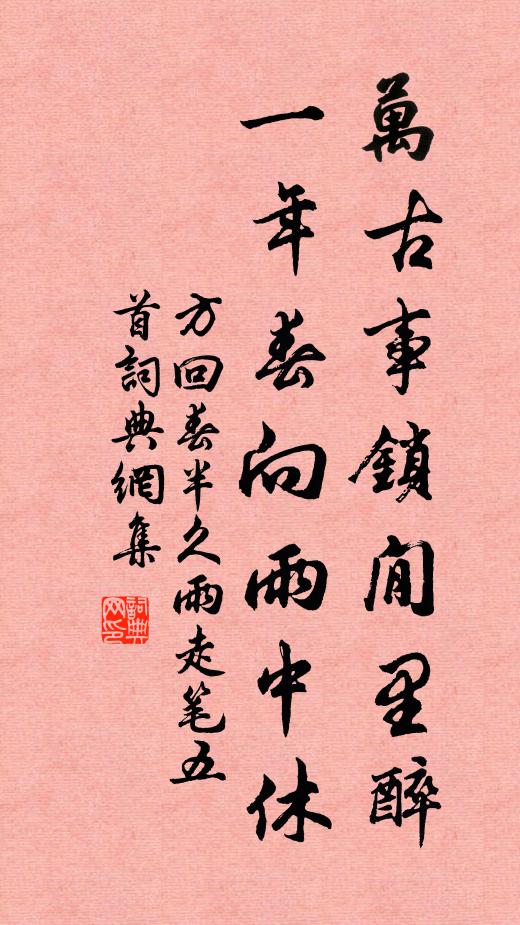 萬古事鎖閒里醉
一年春向雨中休
方回春半久雨走笔五
首詞典網集
詞典
网印